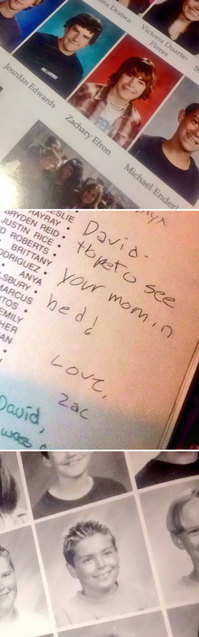 Victoria Duarte-
Flores
Jourdan Edwards
Zachary Efron
Michael Enderl
LESLIE
RAYRAY •
BRYDEN REID •
JUSTIN RICE •
D ROBERTS •
BRITTANY
RODRIGUEZ •
ANYA
LSBURY •
MARCUS
NTOS •
EMILY
HER
AN
David-
Hope to see
your mom in
bed!
Love,
Zac
David,